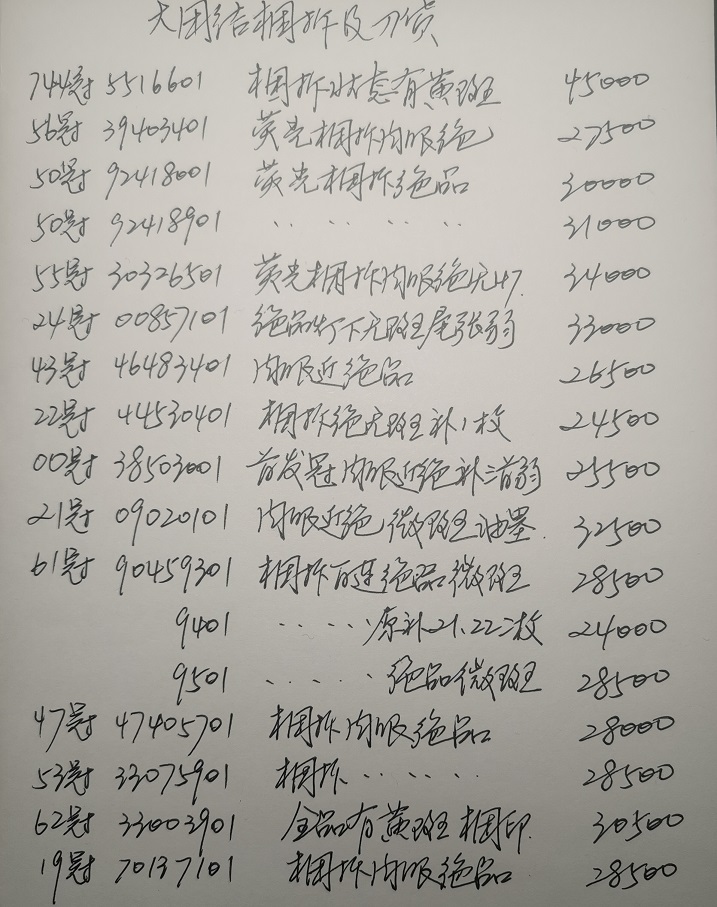 大团结捆拆及刀货
744冠 5516601 捆拆状态有黄斑 45000
56冠 39403401 荧光捆拆肉眼绝 27500
50冠 92418001 荧光捆拆绝品 30000
50冠 92418901 ‥ ‥ ‥ ‥ 31000
55冠 30326501 荧光捆拆肉眼绝无47. 34000
24冠 00857101 绝品灯下无斑尾张弱 33000
43冠 46483401 肉眼近绝品 26500
22冠 44530401 捆拆绝无斑补1枚 24500
00冠 38503001 首发冠肉眼近绝补三首弱 25500
21冠 09020101 肉眼近绝微斑油墨. 32500
61冠 90459301 捆拆百连绝品微斑 28500
9401 ‥ ‥ ‥ 原补21.22二枚 24000
9501 ‥ ‥ ‥ 绝品微斑 28500
47冠 47405701 捆拆肉眼绝品 28000
53冠 33075901 捆拆 ‥ ‥ ‥ 28500
62冠 33003901 全品有黄斑捆印. 30500
19冠 70137101 捆拆肉眼绝品 28500